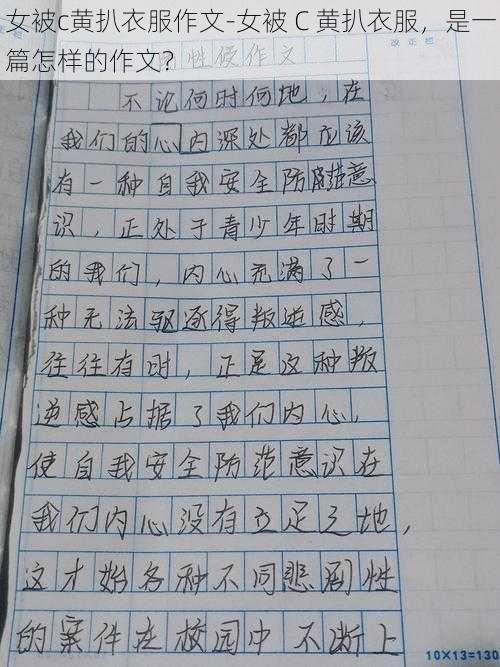 女被c黄扒衣服作文-女被 C 黄扒衣服，是一
篇怎样的作文？
性侵作文
改正栏
不论何时何地，在
我们的心内深处都应该
有一种自我安全防范意
识，正处于青少年时期
的我们，内心充满了一
种无法驱逐得叛逆感，
往往有时，正是这种叛
逆感占据了我们内心，
使自我安全防范意识在
我们内心没有立足之地，
这才始各种不同悲剧性
的案件在校园中不断上
10×13=130